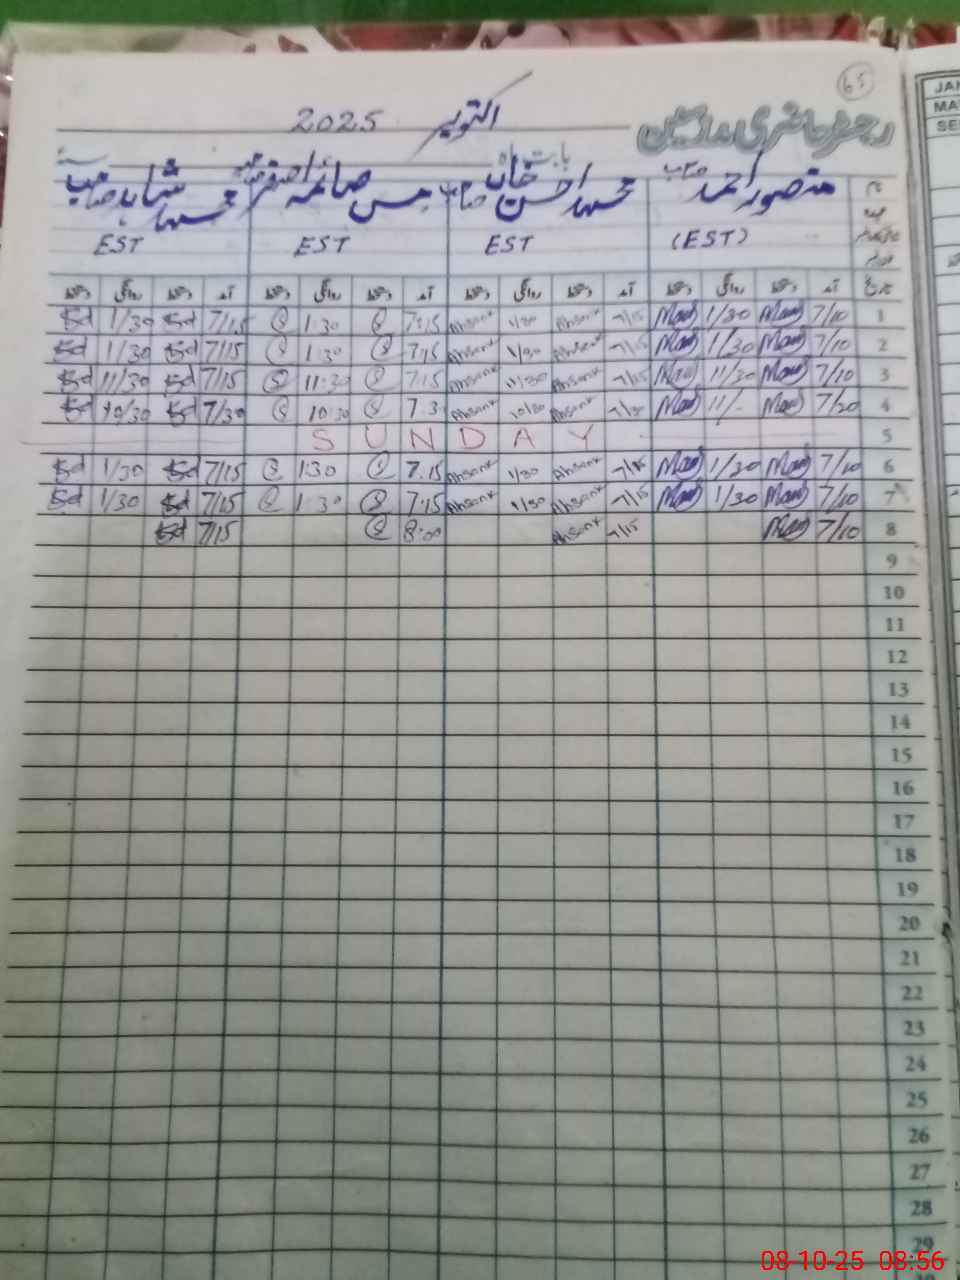 65
رجسٹر حاضری ملازمین
بابت ماہ اکتوبر 2025
منصور احمد صاحب محمد احسن خان صاحب مس صائمہ اصغر صاحبہ محمد شاہد صاحب
(EST) EST EST EST
نام
عہدہ
تاریخ آمد دستخط روانگی دستخط آمد دستخط روانگی دستخط آمد دستخط روانگی دستخط آمد دستخط روانگی دستخط
1 7/10 1/30 7/15 Ahsank 1/30 Ahsank 7:15 1:30 7/15 Sd 1/30 Sd
2 7/10 1/30 7/15 Ahsank 1/30 Ahsank 7:15 1:30 7/15 Sd 1/30 Sd
3 7/10 11/30 7/15 Ahsank 11/30 Ahsank 7:15 11:30 7/15 Sd 11/30 Sd
4 7/20 11/- 7/30 Ahsank 10/30 Ahsank 7:3 10:30 7/30 Sd 10/30 Sd
5 SUNDAY
6 7/10 1/30 7/15 Ahsank 1/30 Ahsank 7:15 1:30 7/15 Sd 1/30 Sd
7 7/10 1/30 7/15 Ahsank 1/30 Ahsank 7:15 1:30 7/15 Sd 1/30 Sd
8 7/10 7/15 Ahsank 8:00 7/15 Sd
9
10
11
12
13
14
15
16
17
18
19
20
21
22
23
24
25
26
27
28
29
JAN
MA
SE
08-10-25 08:56